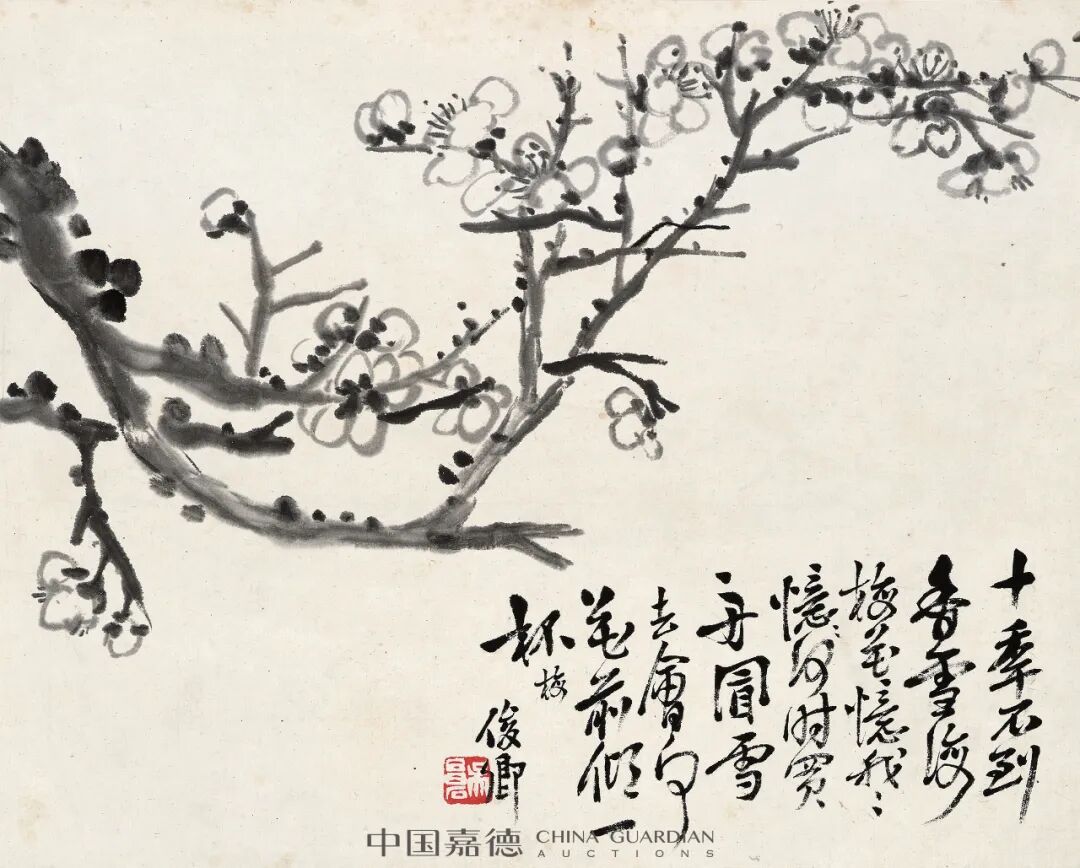 十秊不到
香雪海
梅花憶我〻
憶何时買
舟冒雪
去會向
花前傾一
杯 梅
俊卿
中国嘉德 CHINA GUARDIAN
AUCTIONS